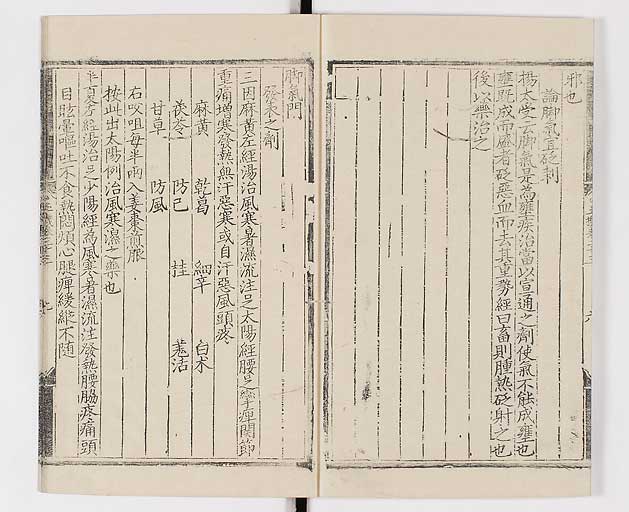 邪也
論脚氣宜砭刺
楊太受云脚氣是為壅疾治當以宣通之劑使氣不能成壅也
壅既成而盛者砭惡血而去其重勢經曰畜則腫熱砭射之也
後以藥治之
脚氣門
發表之劑
三因麻黄左經湯治風寒暑濕流注足太陽經腰足攣痺関節
重痛增寒發熱無汗惡寒或自汗惡風頭疼
麻黄 乾葛 細辛 白术
茯苓 防己 桂 羌活
甘草 防風
右㕮咀每半兩入姜棗煎服
按此出太陽例治風寒濕之藥也
半夏左經湯治足少陽經為風寒暑濕流注發熱腰脇疼痛頭
目眩暈嘔吐不食熱悶煩心腿痺緩縱不随